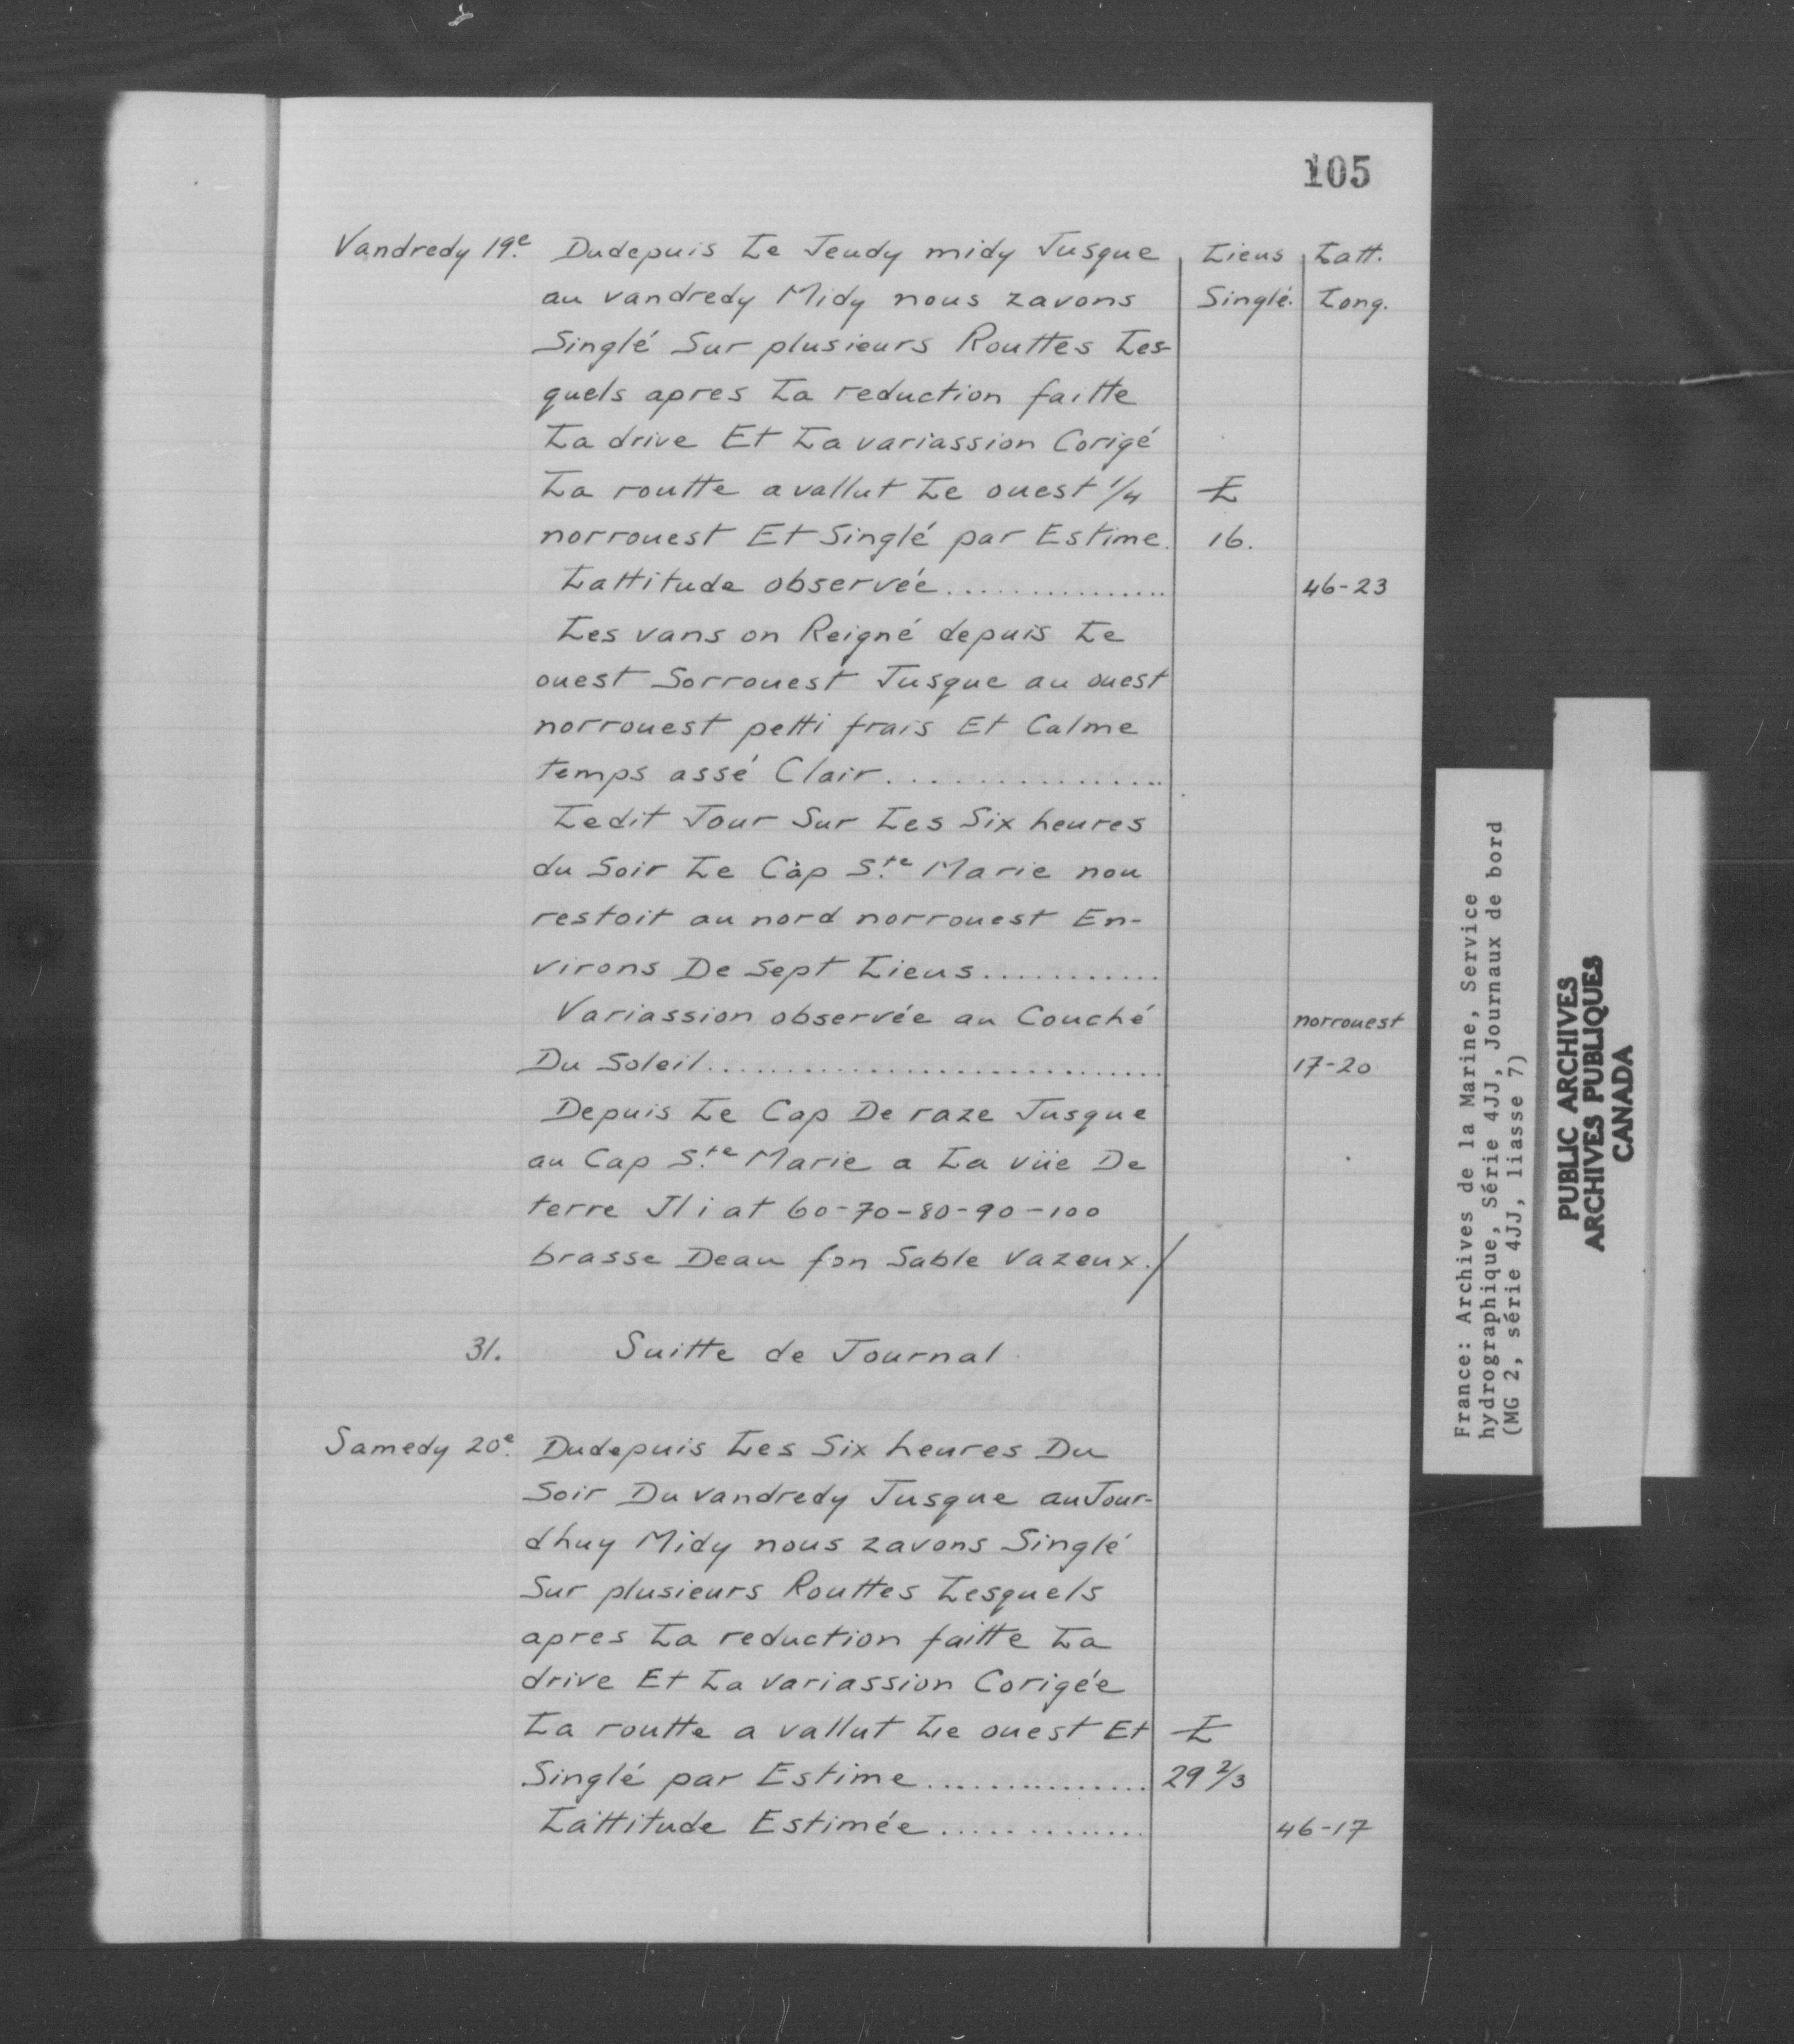 105
Vandredy 19.e Dudepuis Le Jeudy midy Jusque Lieus Latt.
au vandredy Midy nous zavons Singlé. Long.
Singlé Sur plusieurs Routtes Les-
quels apres La reduction faitte
La drive Et La variassion Corigé
La routte a vallut Le ouest 1/4 L
norrouest Et Singlé par Estime. 16.
Lattitude observée................ 46-23
Les vans on Reigné depuis Le
ouest Sorrouest Jusque au ouest
norrouest petti frais Et Calme
temps assé Clair................
Ledit Jour Sur Les Six heures
du Soir Le Càp S.te Marie nou
restoit au nord norrouest En-
virons De Sept Lieus............
Variassion observée au Couché norrouest
Du Soleil.............................. 17-20
Depuis Le Cap De raze Jusque
au Cap S.te Marie a La vüe De
terre Jl i at 60-70-80-90-100
brasse Deau fon Sable vazeux./
31. Suitte de Journal.
Samedy 20.e Dudepuis Les Six heures Du
Soir Du vandredy Jusque auJour-
dhuy Midy nous zavons Singlé
Sur plusieurs Routtes Lesquels
apres La reduction faitte La
drive Et La variassion Corigée
La routte a vallut Le ouest Et L
Singlé par Estime............... 29 2/3
Lattitude Estimée.............. 46-17
France: Archives de la Marine, Service
hydrographique, Série 4JJ, Journaux de bord
(MG 2, série 4JJ, liasse 7)
PUBLIC ARCHIVES
ARCHIVES PUBLIQUES
CANADA